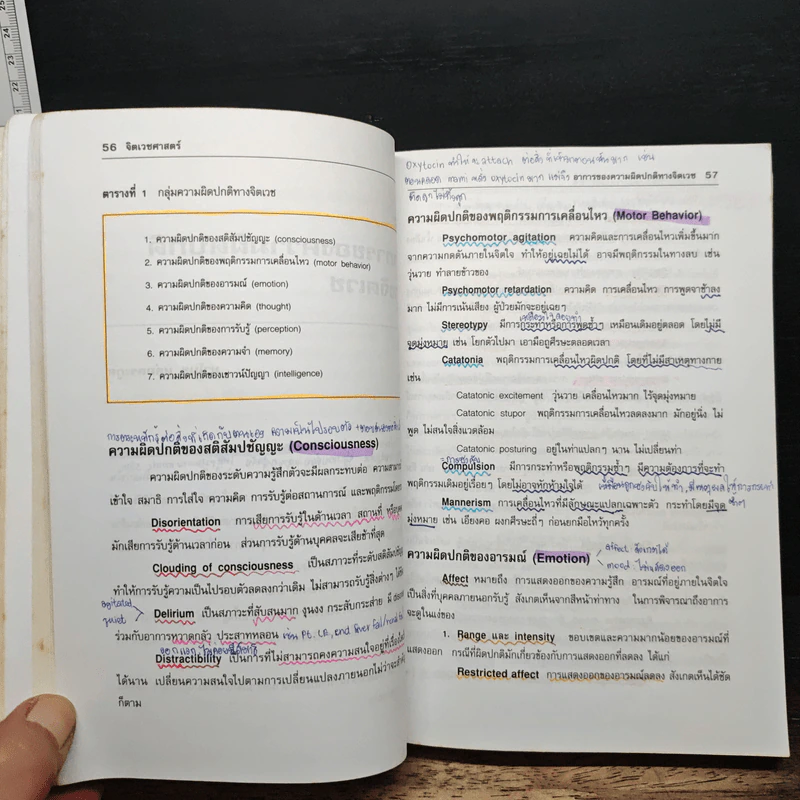 56 จิตเวชศาสตร์
ตารางที่ 1 กลุ่มความผิดปกติทางจิตเวช
1. ความผิดปกติของสติสัมปชัญญะ (consciousness)
2. ความผิดปกติของพฤติกรรมการเคลื่อนไหว (motor behavior)
3. ความผิดปกติของอารมณ์ (emotion)
4. ความผิดปกติของความคิด (thought)
5. ความผิดปกติของการรับรู้ (perception)
6. ความผิดปกติของความจำ (memory)
7. ความผิดปกติของเชาวน์ปัญญา (intelligence)
ความผิดปกติของสติสัมปชัญญะ (Consciousness)
ความผิดปกติของระดับความรู้สึกตัวจะมีผลกระทบต่อ
เข้าใจ สมาธิ การใส่ใจ ความคิด การรับรู้ต่อสถานการณ์ และ
Disorientation การเสียการรับรู้ในด้านเวลา สถานที่ หรือ
มักเสียการรับรู้ด้านเวลาก่อน ส่วนการรับรู้ด้านบุคคลจะเสียช้าที่สุด
Clouding of consciousness เป็นสภาวะที่ระดับ
ทำให้การรับรู้ความเป็นไปรอบตัวลดลงกว่าเดิม ไม่สามารถรับรู้สิ่งต่างๆ
agitated
quiet
Delirium เป็นสภาวะที่สับสนมาก งุนงง กระสับกระส่าย มี
ร่วมกับอาการหวาดกลัว ประสาทหลอน
Distractibility เป็นการที่ไม่สามารถคงความสนใจอยู่ที่
ได้นาน เปลี่ยนความสนใจไปตามการเปลี่ยนแปลงภายนอกไม่ว่าจะ
ก็ตาม
oxytocin attach
oxytocin
อาการของความผิดปกติทางจิตเวช 57
ความผิดปกติของพฤติกรรมการเคลื่อนไหว (Motor Behavior)
Psychomotor agitation ความคิดและการเคลื่อนไหวเพิ่มขึ้นมาก
จากความกดดันภายในจิตใจ ทำให้อยู่เฉยไม่ได้ อาจมีพฤติกรรมในทางลบ เช่น
วุ่นวาย ทำลายข้าวของ
Psychomotor retardation ความคิด การเคลื่อนไหว การพูดจาช้าลง
มาก ไม่มีการเน้นเสียง ผู้ป่วยมักจะอยู่เฉยๆ
Stereotypy มีการกระทำหรือการพูดซ้ำๆ เหมือนเดิมอยู่ตลอด โดยไม่มี
จุดมุ่งหมาย เช่น โยกตัวไปมา เอามือถูศีรษะตลอดเวลา
Catatonia พฤติกรรมการเคลื่อนไหวผิดปกติ โดยที่ไม่มีสาเหตุทางกาย
เช่น
Catatonic excitement วุ่นวาย เคลื่อนไหวมาก ไร้จุดมุ่งหมาย
Catatonic stupor พฤติกรรมการเคลื่อนไหวลดลงมาก มักอยู่นิ่ง ไม่
พูด ไม่สนใจสิ่งแวดล้อม
Catatonic posturing อยู่ในท่าแปลกๆ นาน ไม่เปลี่ยนท่า
Compulsion มีการกระทำหรือพฤติกรรมซ้ำๆ มีความต้องการที่จะทำ
พฤติกรรมเดิมอยู่เรื่อยๆ โดยไม่อาจหักห้ามใจได้
Mannerism การเคลื่อนไหวที่มีลักษณะแปลกเฉพาะตัว กระทำโดยมีจุด
มุ่งหมาย เช่น เอียงคอ ผงกศีรษะถี่ๆ ก่อนยกมือไหว้ทุกครั้ง
ความผิดปกติของอารมณ์ (Emotion)
affect
mood
Affect หมายถึง การแสดงออกของความรู้สึก อารมณ์ที่อยู่ภายในจิตใจ
เป็นสิ่งที่บุคคลภายนอกรับรู้ สังเกตเห็นจากสีหน้าท่าทาง ในการพิจารณาถึงอาการ
จะดูในแง่ของ
1. Range and intensity ขอบเขตและความมากน้อยของอารมณ์ที่
แสดงออก กรณีที่ผิดปกติมักเกี่ยวข้องกับการแสดงออกที่ลดลง ได้แก่
Restricted affect การแสดงออกของอารมณ์ลดลง สังเกตเห็นได้ชัด